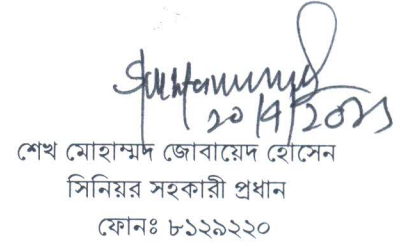 শেখ মোহাম্মদ জোবায়েদ হোসেন
সিনিয়র সহকারী প্রধান
ফোনঃ ৮১২৯২২০